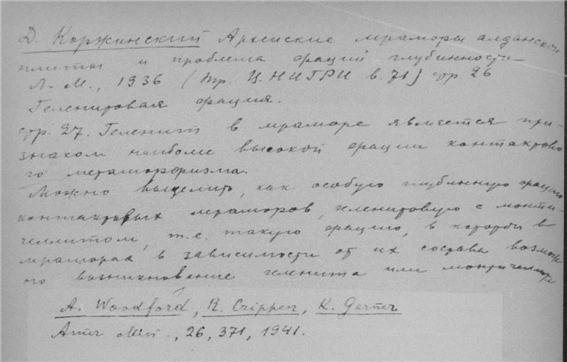 Д. Коржинский Архейские мраморы алданской
плиты и проблема фаций глубинности
Л.-М., 1936 (Тр. ЦНИГРИ в. 71) стр 26
Геленитовая фация.
стр. 27. Геленит в мраморе является при-
знаком наиболее высокой фации контактово
го метаморфизма.
Можно выделить, как особую глубинную фацию
контактовых мраморов, геленитовую с монти-
челлитом, т.е. такую фацию, в которой в
мраморах в зависимости от их состава возмож
но возникновение геленита или монтичеллита
A. Woodford, R. Crippen, K. Garner
Amer Min., 26, 371, 1941.